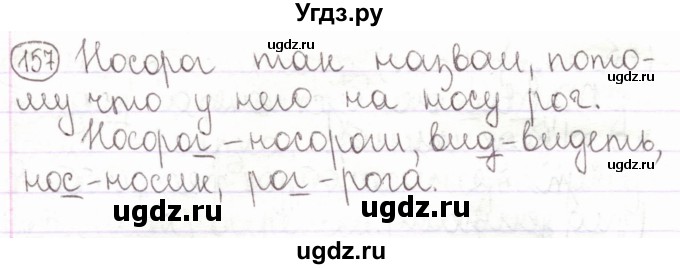 Угдз.ру
157 Носорог так назван, пото-
ugdz.ru ugdz.ru
му что у него на носу рог.
Носорог - носороги, вид - видеть,
ugdz.ru
нос - носик, рог - рога.
ugdz.ru ugdz.ru
ugdz.ru